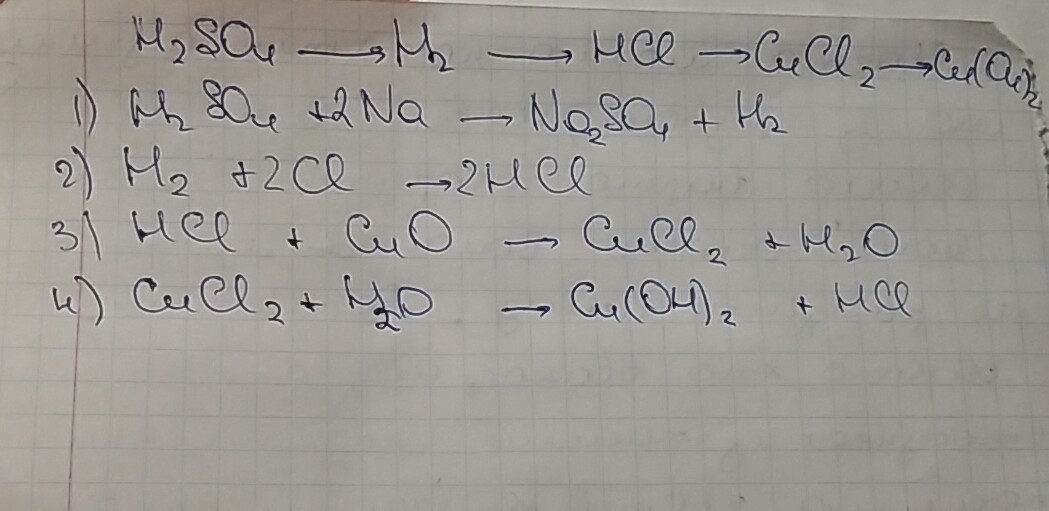 H₂SO₄ → H₂ → HCl → CuCl₂ → Cu(OH)₂
1) H₂SO₄ + 2Na → Na₂SO₄ + H₂
2) H₂ + 2Cl → 2HCl
3) HCl + CuO → CuCl₂ + H₂O
4) CuCl₂ + H₂O → Cu(OH)₂ + HCl